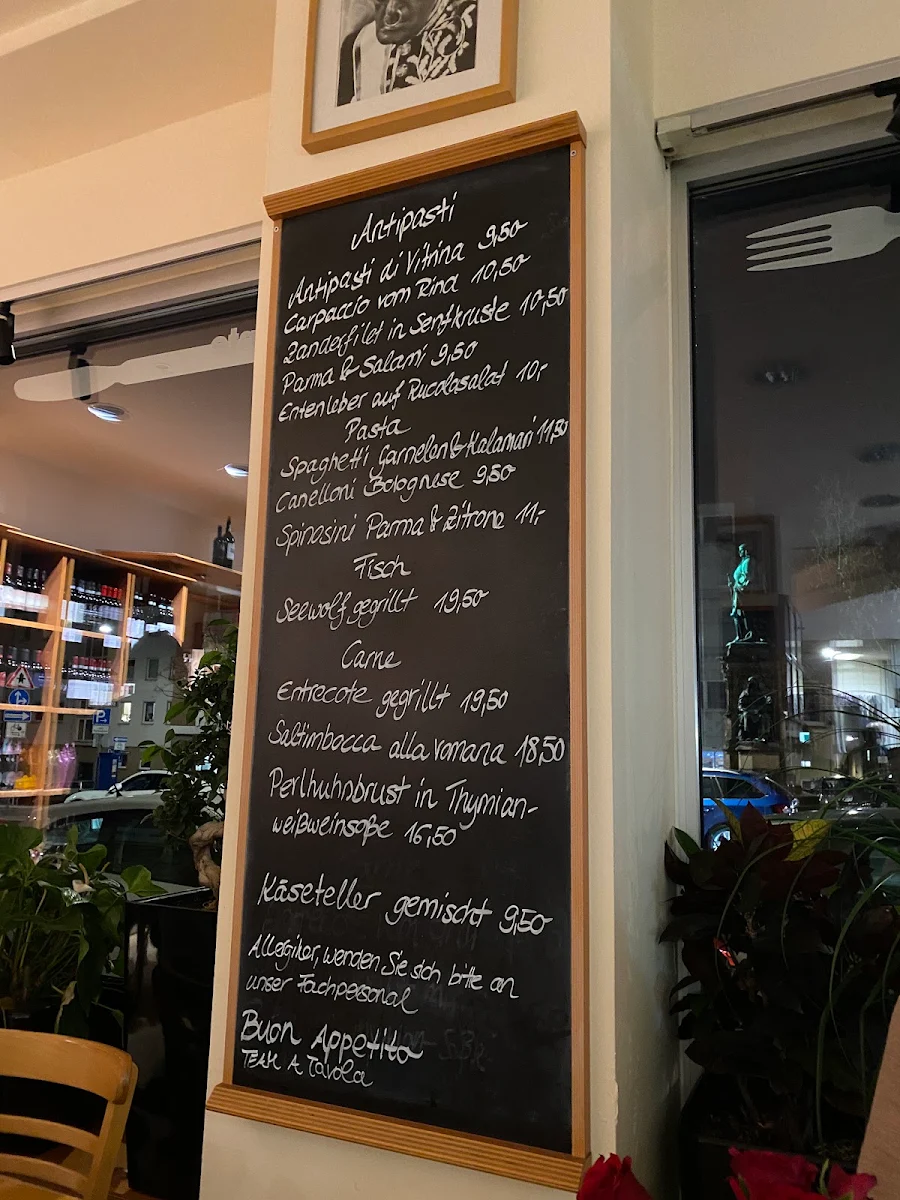 Antipasti
Antipasti di Vitrina 9,50
Carpaccio vom Rind 10,50
Zanderfilet in Senfkruste 10,50
Parma & Salami 9,50
Entenleber auf Rucolasalat 10,-
Pasta
Spaghetti Garnelen & Kalamari 11,50
Canelloni Bolognese 9,50
Spinosini Parma & Zitrone 11,-
Fisch
Seewolf gegrillt 19,50
Carne
Entrecote gegrillt 19,50
Saltimbocca alla romana 18,50
Perlhuhnbrust in Thymian-
weißweinsoße 16,50
Käseteller gemischt 9,50
Allergiker, wenden Sie sich bitte an
unser Fachpersonal
Buon Appetito
TEAM A Tavola
P